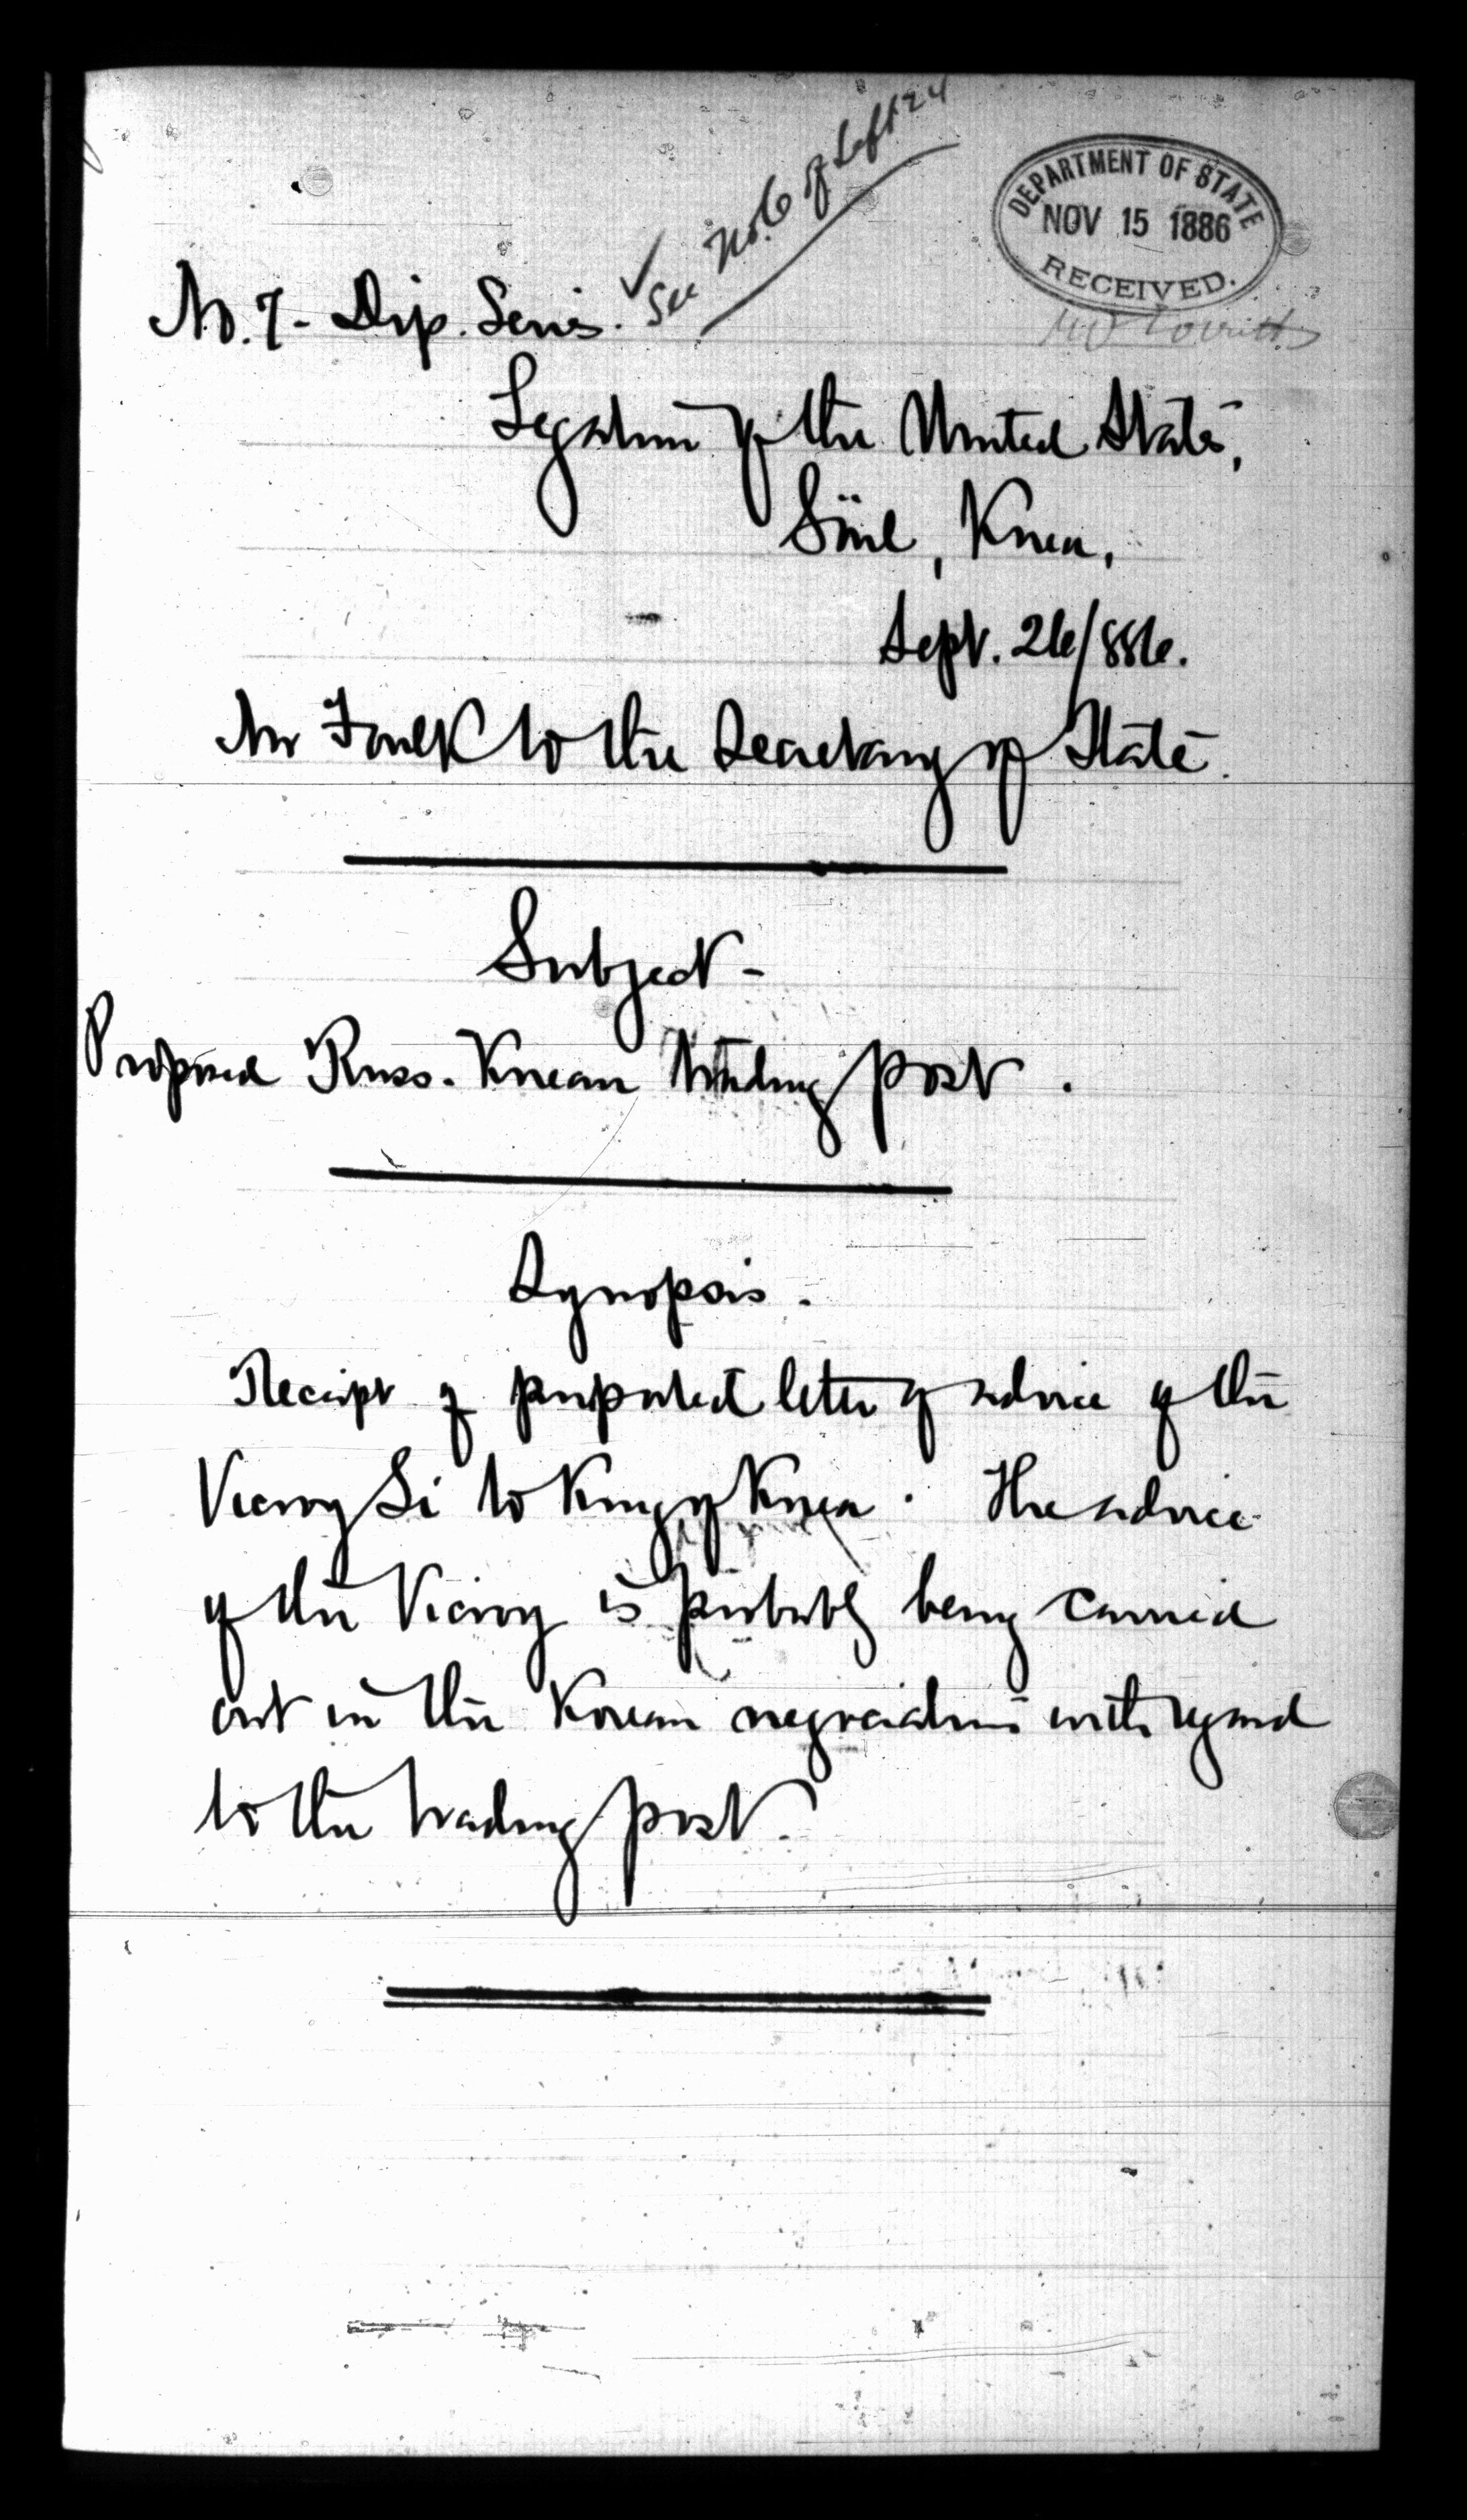 See No. 6 of Sept 24
DEPARTMENT OF STATE
NOV 15 1886
RECEIVED.
No. 7 - Dip. Series.
Legation of the United States,
Söul, Korea,
Sept. 26/886.
Mr Foulk to the Secretary of State.
Subject -
Proposed Russ. Korean trading post.
Synopsis.
Receipt of purported letter of advice of the
Viceroy Li to King of Korea. The advice
of the Viceroy is probably being carried
out in the Korean negotiations with regard
to the trading post.